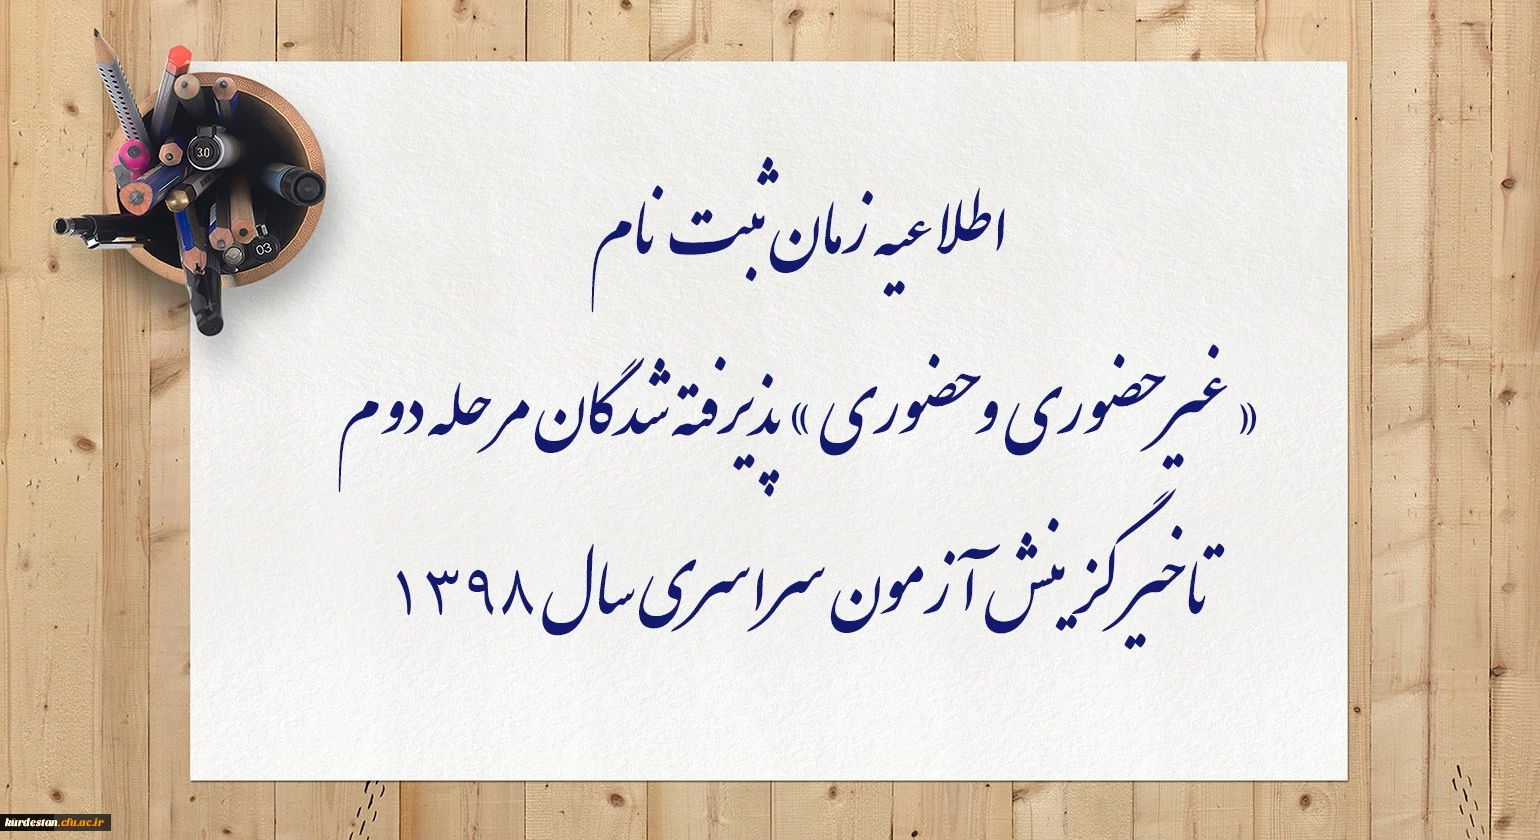 اطلاعیه زمان ثبت نام
« غیرحضوری و حضوری » پذیرفته شدگان مرحله دوم
تاخیر گزینش آزمون سراسری سال ۱۳۹۸
3.0
03
kurdestan.cfu.ac.ir